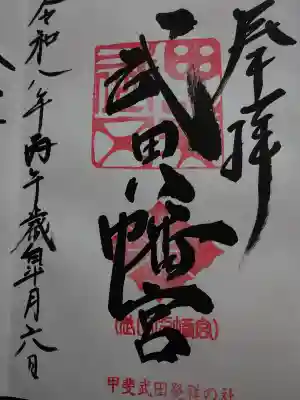 奉拝
武田八幡宮
甲斐武田発祥の社
令和八年丙午歳皐月六日